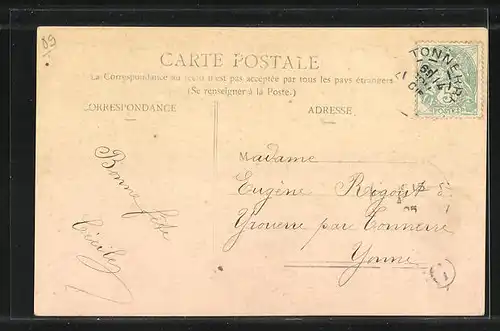 89
CARTE POSTALE
La Correspondance au recto n'est pas acceptée par tous les pays étrangers
(Se renseigner à la Poste.)
CORRESPONDANCE
ADRESSE
TONNERRE
POSTES
Bonne fête
Cécile
Madame
Eugène Rigout à
Yrouerre par Tonnerre
Yonne